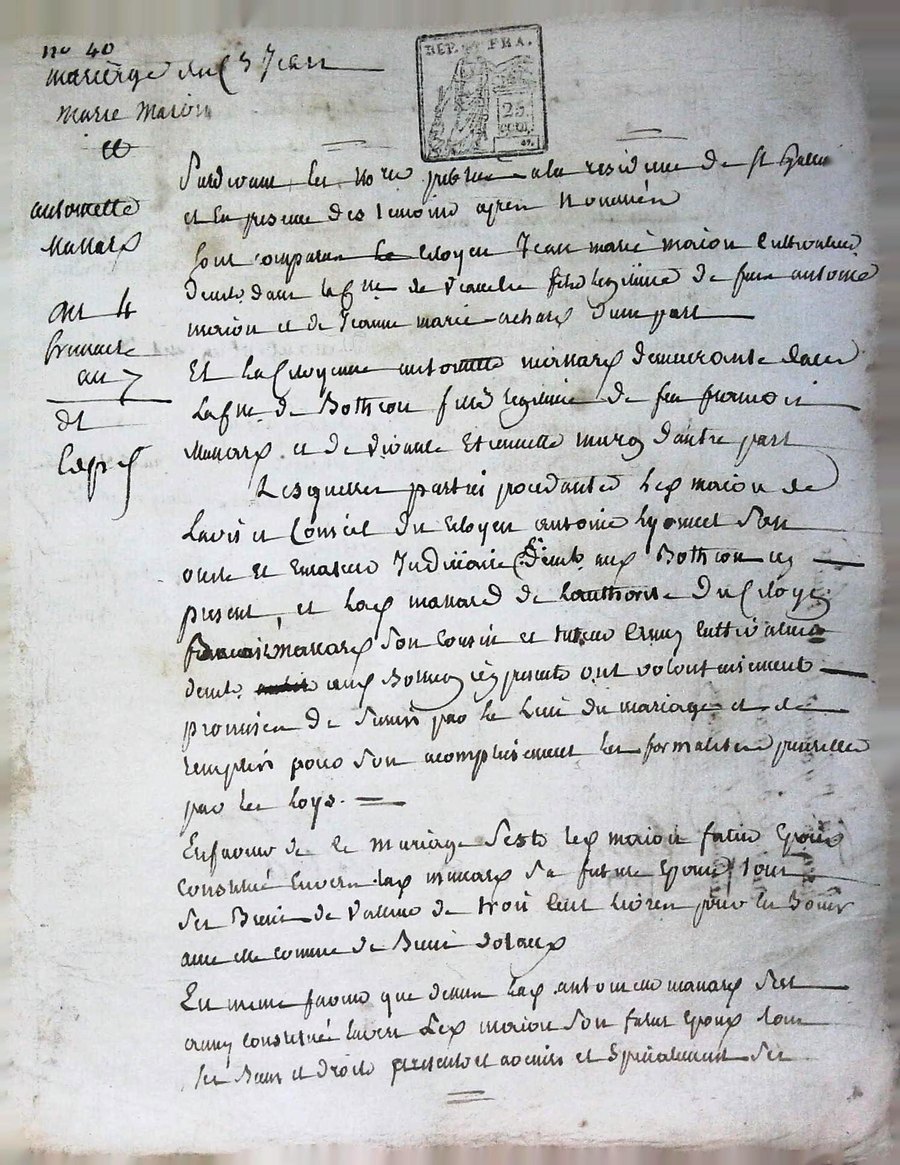 no 40
mariage du C.n Jean
marie marion
et
antoinette
Manard
du 4
brumaire
an 7
dt
Exp
REP. FRA.
25
CENT.
Pardevant les No.re public a la residence de St
et en presence des temoins apres Nommés
Sont comparu le Citoyen Jean marie marion Cultivateur
demt. dans la Cne de fils legitime de feu antoine
marion et de Jeanne marie achard d'une part
Et la Citoyenne antoinette manard demeurante dans
la Cne de Botheon fille legitime de feu francois
Manard et de vivante Etiennette d'autre part
Lesquelles parties procedantes led marion de
Lavis et Conseil du Citoyen antoine Lyonnet son
oncle et Curateur Judiciaire demt. aud Bothéon icy
present, et lad manard de Lauthorité du Citoyen
francois manard son cousin et tuteur Cultivateur
demt. aud Botheon icy presents ont volontairement
promis de sunir par le Lien du mariage et de
remplir pour son acomplissement les formalités
par les Loys.
En faveur de ce mariage Sest led marion futur Epoux
Constitué Envers lad manard Sa future Epouse tous
Ses Biens de Valleur de trois Cent Livres pour en Jouir
avec elle comme de Biens dotaux
En meme faveur que dessus lad antoinette manard Sest
Constitué Envers Led marion Son futur Epoux tous
Ses Biens et droits presents et avenirs et Specialement Ses